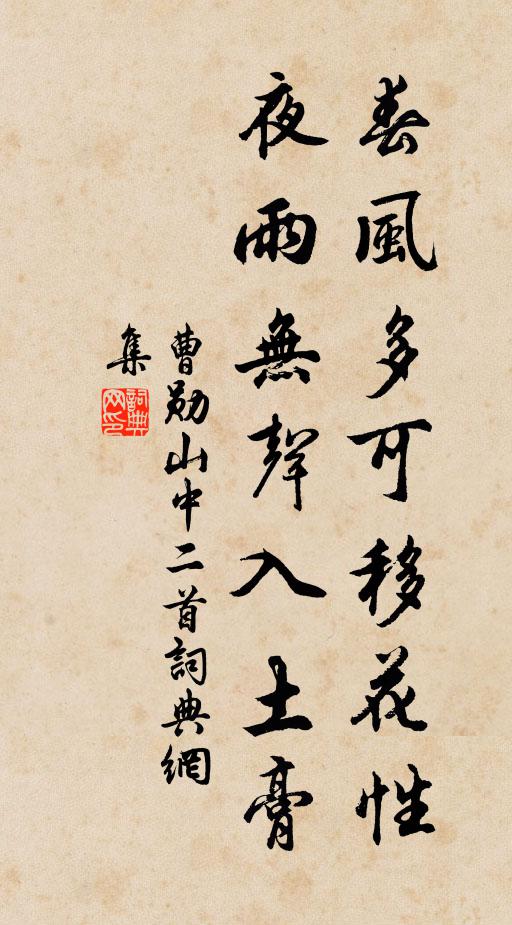 春風多可移花性
夜雨無聲入土膏
曹勛山中二首詞典網
集
詞典網印